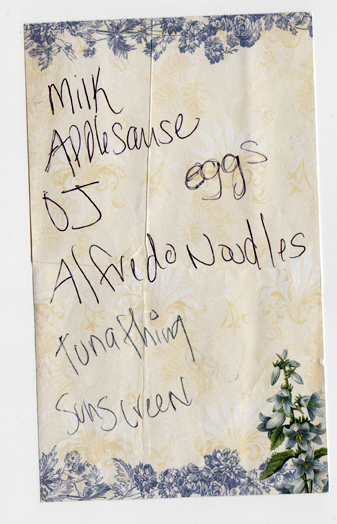 Milk
Applesause
OJ
eggs
Alfredo Noodles
Tunafhing
Sunscreen